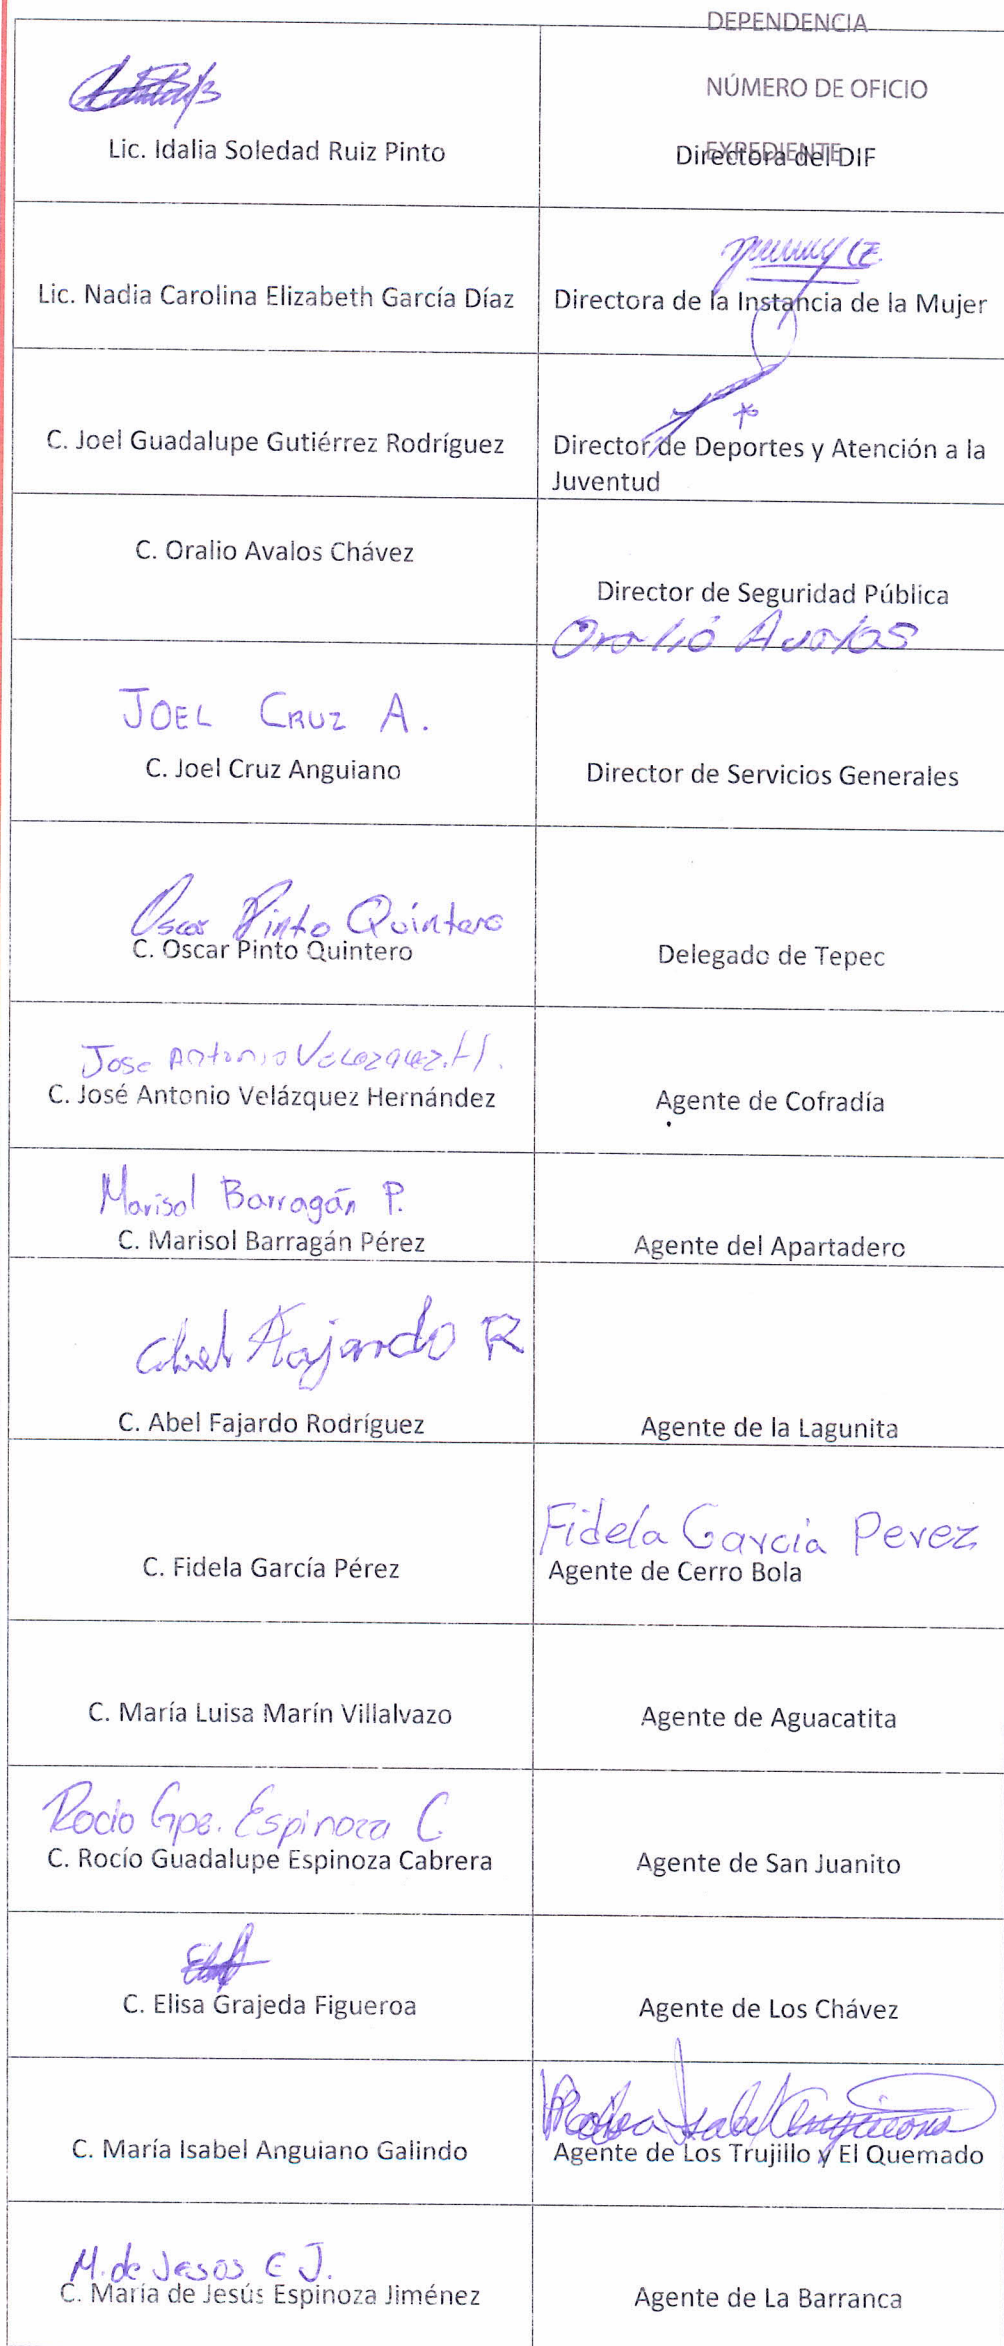 DEPENDENCIA
NÚMERO DE OFICIO
EXPEDIENTE
Lic. Idalia Soledad Ruiz Pinto
Directora del DIF
Lic. Nadia Carolina Elizabeth García Díaz
Directora de la Instancia de la Mujer
C. Joel Guadalupe Gutiérrez Rodríguez
Director de Deportes y Atención a la
Juventud
C. Oralio Avalos Chávez
Director de Seguridad Pública
Oralio Avalos
JOEL CRUZ A.
C. Joel Cruz Anguiano
Director de Servicios Generales
Oscar Pinto Quintero
C. Oscar Pinto Quintero
Delegado de Tepec
Jose Antonio Velazquez.H.
C. José Antonio Velázquez Hernández
Agente de Cofradía
Marisol Barragán P.
C. Marisol Barragán Pérez
Agente del Apartadero
Abel Fajardo R
C. Abel Fajardo Rodríguez
Agente de la Lagunita
Fidela García Perez
C. Fidela García Pérez
Agente de Cerro Bola
C. María Luisa Marín Villalvazo
Agente de Aguacatita
Rocio Gpe. Espinoza C
C. Rocío Guadalupe Espinoza Cabrera
Agente de San Juanito
C. Elisa Grajeda Figueroa
Agente de Los Chávez
Isabel Anguiano
C. María Isabel Anguiano Galindo
Agente de Los Trujillo y El Quemado
M. de Jesos E J.
C. María de Jesús Espinoza Jiménez
Agente de La Barranca